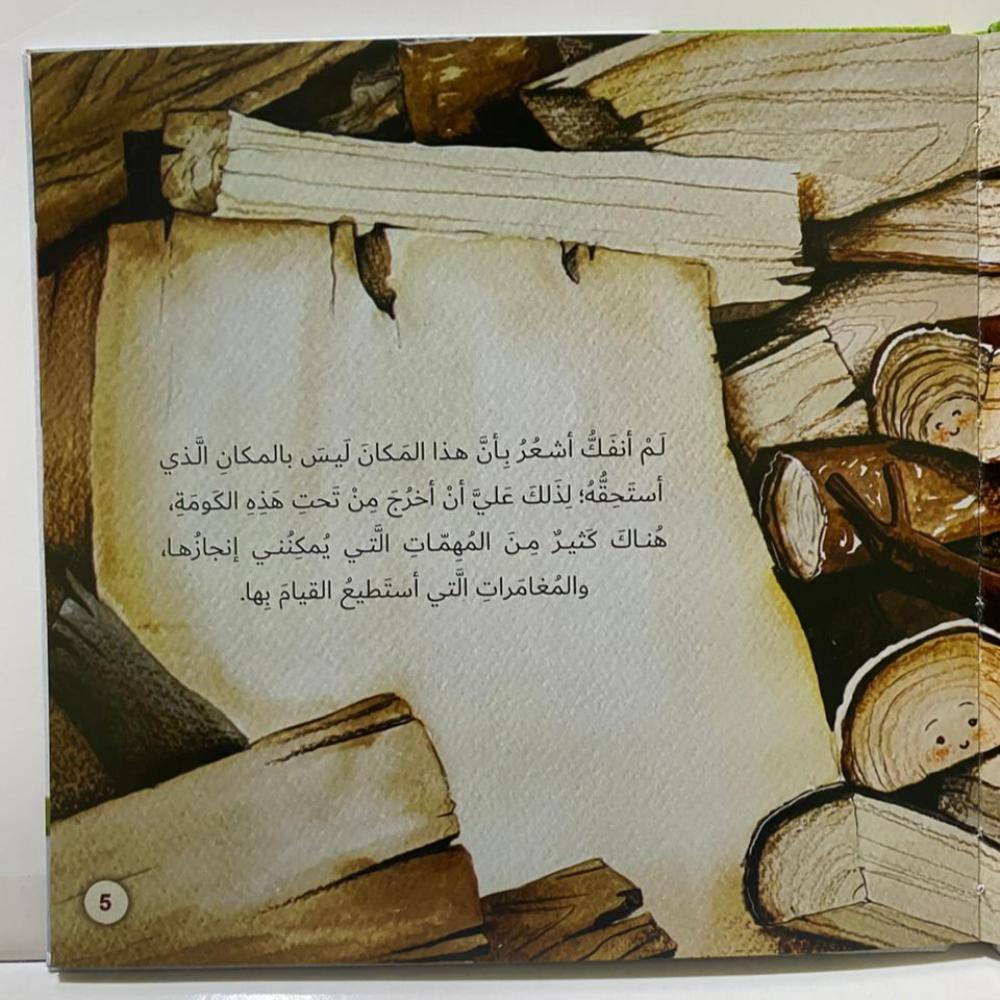 لَمْ أنفَكُّ أشعُرُ بِأنَّ هذا المَكانَ لَيسَ بالمكانِ الَّذي
أستَحِقُّهُ؛ لِذَلكَ عَليَّ أنْ أخرُجَ مِنْ تَحتِ هَذِهِ الكَومَةِ،
هُناكَ كَثيرٌ مِنَ المُهِمّاتِ الَّتي يُمكِنُني إنجازُها،
والمُغامَراتِ الَّتي أستَطيعُ القيامَ بِها.
5